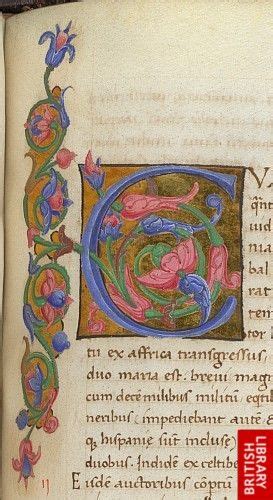 C
V
qñt
uid
nia
bal
rar
tem
tor
tu ex affrica transgressus,
duo maria est. brevi magn
cum decē milibus militū eqti
neribus impediebant ante
q hispanie sūt incluse
duobus. Indidē ex celtibe
Eisdē auctoribus cōptū
BRITISH
LIBRARY